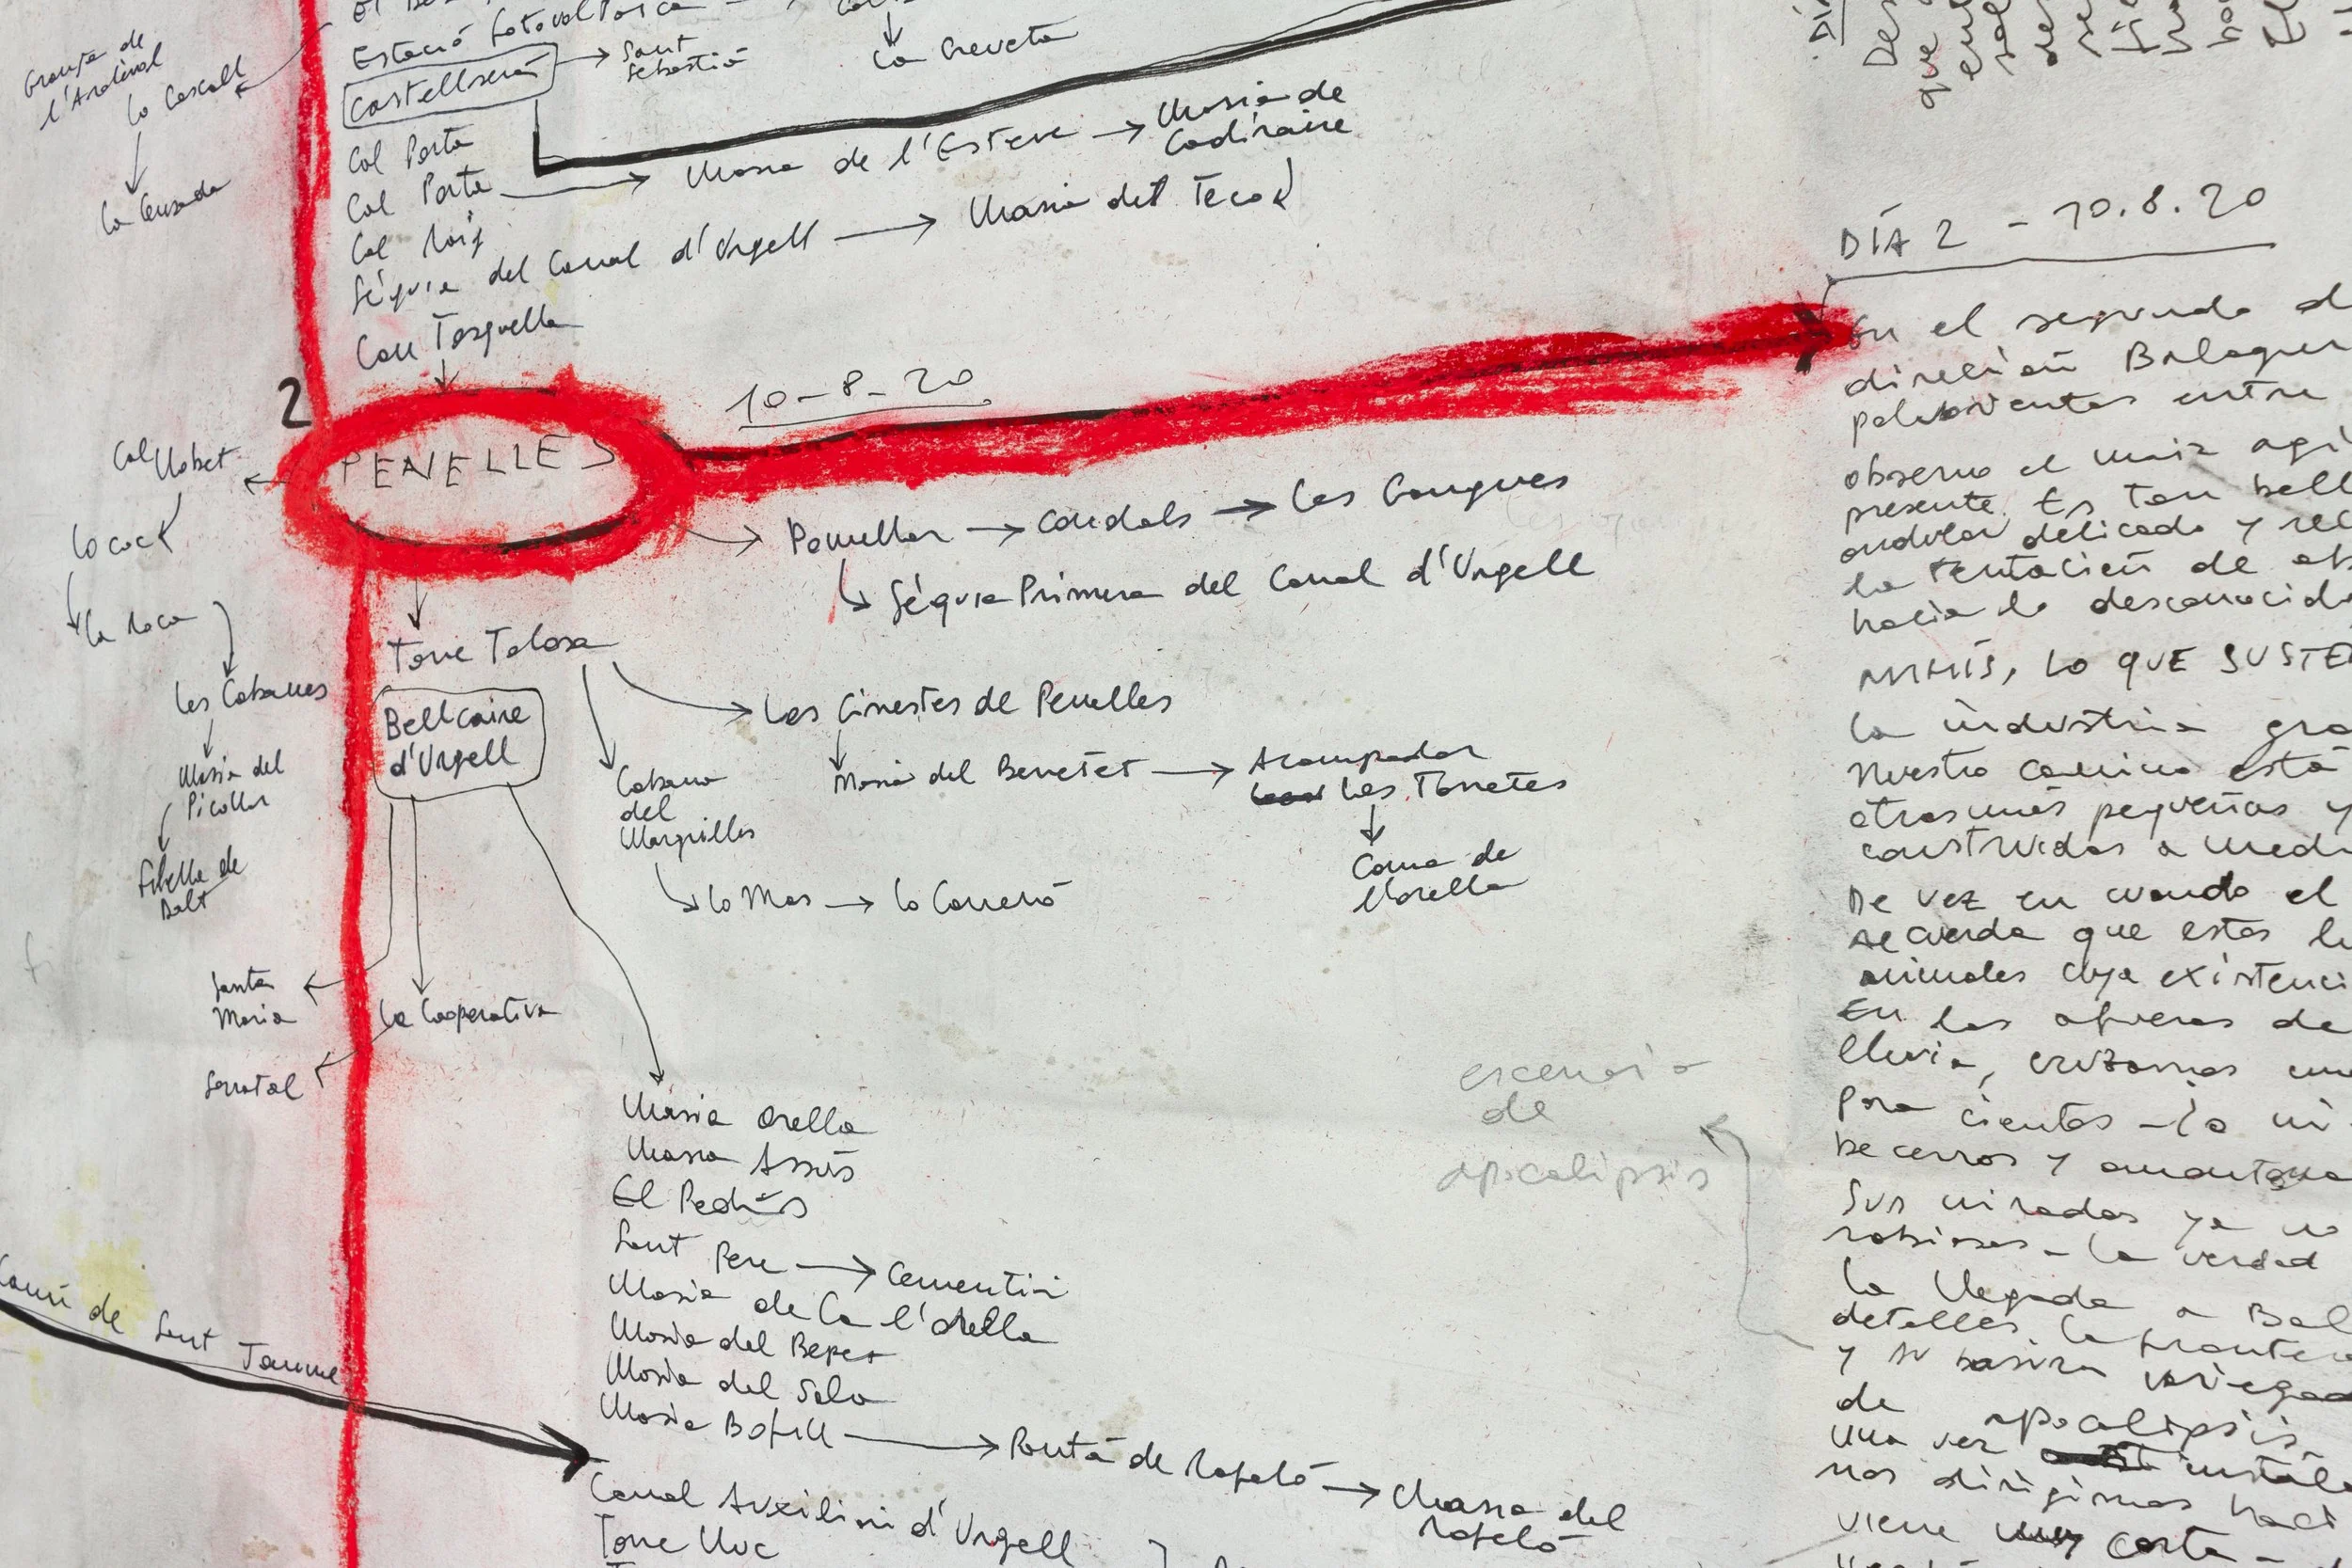 Estació fotovoltaica
Castellserà → Sant
Sebastià
La Creveta
Granja de
l'Ardèvol
Lo Cascall
La Censada
Cal Porta
Cal Porta → Masia de l'Esteve → Masia de
Cadiraire
Cal Roig
Séquia del Canal d'Urgell → Masia del Teco
Can Tarquella
2
PENELLES
10-8-20
Cal Llobet
Lo coc
La Roca
Les Cabanes
Masia del
Picollar
Sibella de
Dalt
Penellar → Condals → Les Gongues
Séquia Primera del Canal d'Urgell
Torre Talosa
Bellcaire
d'Urgell
Les Ginestes de Penelles
Masia del Benetet → Acampador
Les Torretes
Coma de
Morella
Cabana
del
Marquilles
Lo Mas → Lo Carreró
Santa
Maria
La Cooperativa
Serratal
Masia Orella
Masia Assís
El Pedrís
Sant Pere → Cementiri
Masia de Ca l'Orella
Masia del Bepet
Masia del Sala
Masia Bofill → Pontà de Rafeló → Masia del
Rafeló
Camí de Sant Jaume
Canal Auxiliar d'Urgell
Torre Lluc
escenario
de
apocalipsis
DÍA 2 - 10.8.20
En el segundo d
dirección Balaguer
polvorientos entre
observo el maíz agi
presente. Es tan bell
ondular delicado y rel
la tentación de ab
hacia lo desconocido
LO QUE SUSTE
La industria gra
Nuestro camino está
otras más pequeñas y
construidas a medi
De vez en cuando el
recuerda que estas
animales cuya existenci
En las afueras de
lluvia, cruzamos un
para cientos - la
becerros y amontona
Sus miradas ya no
rabiosas - la verdad
La llegada a Bal
detalles. La fronter
y su basura variegad
de apocalipsis.
Una vez instala
nos dirigimos haci
viene corta